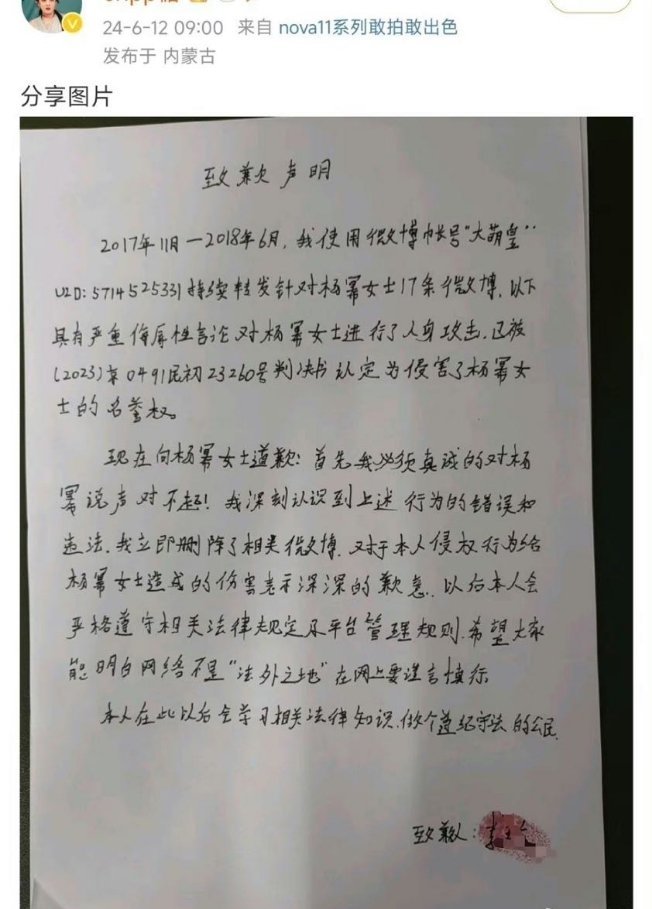 24-6-12 09:00 来自 nova11系列敢拍敢出色
发布于 内蒙古
分享图片
致歉声明
2017年11月—2018年6月，我使用微博帐号“大萌皇”
UID: 5714525331 持续转发针对杨幂女士17条微博，以下
具有严重侮辱性言论对杨幂女士进行了人身攻击，已被
(2023)京0491民初23260号判决书认定为侵害了杨幂女
士的名誉权。
现在向杨幂女士道歉！首先我必须真诚的对杨
幂说声对不起！我深刻认识到上述行为的错误和
违法，我立即删除了相关微博，对于本人侵权行为给
杨幂女士造成的伤害表示深深的歉意，以后本人会
严格遵守相关法律规定及平台管理规则，希望大家
能明白网络不是“法外之地”在网上要谨言慎行，
本人在此以后会学习相关法律知识，做个遵纪守法的公民
致歉人：李